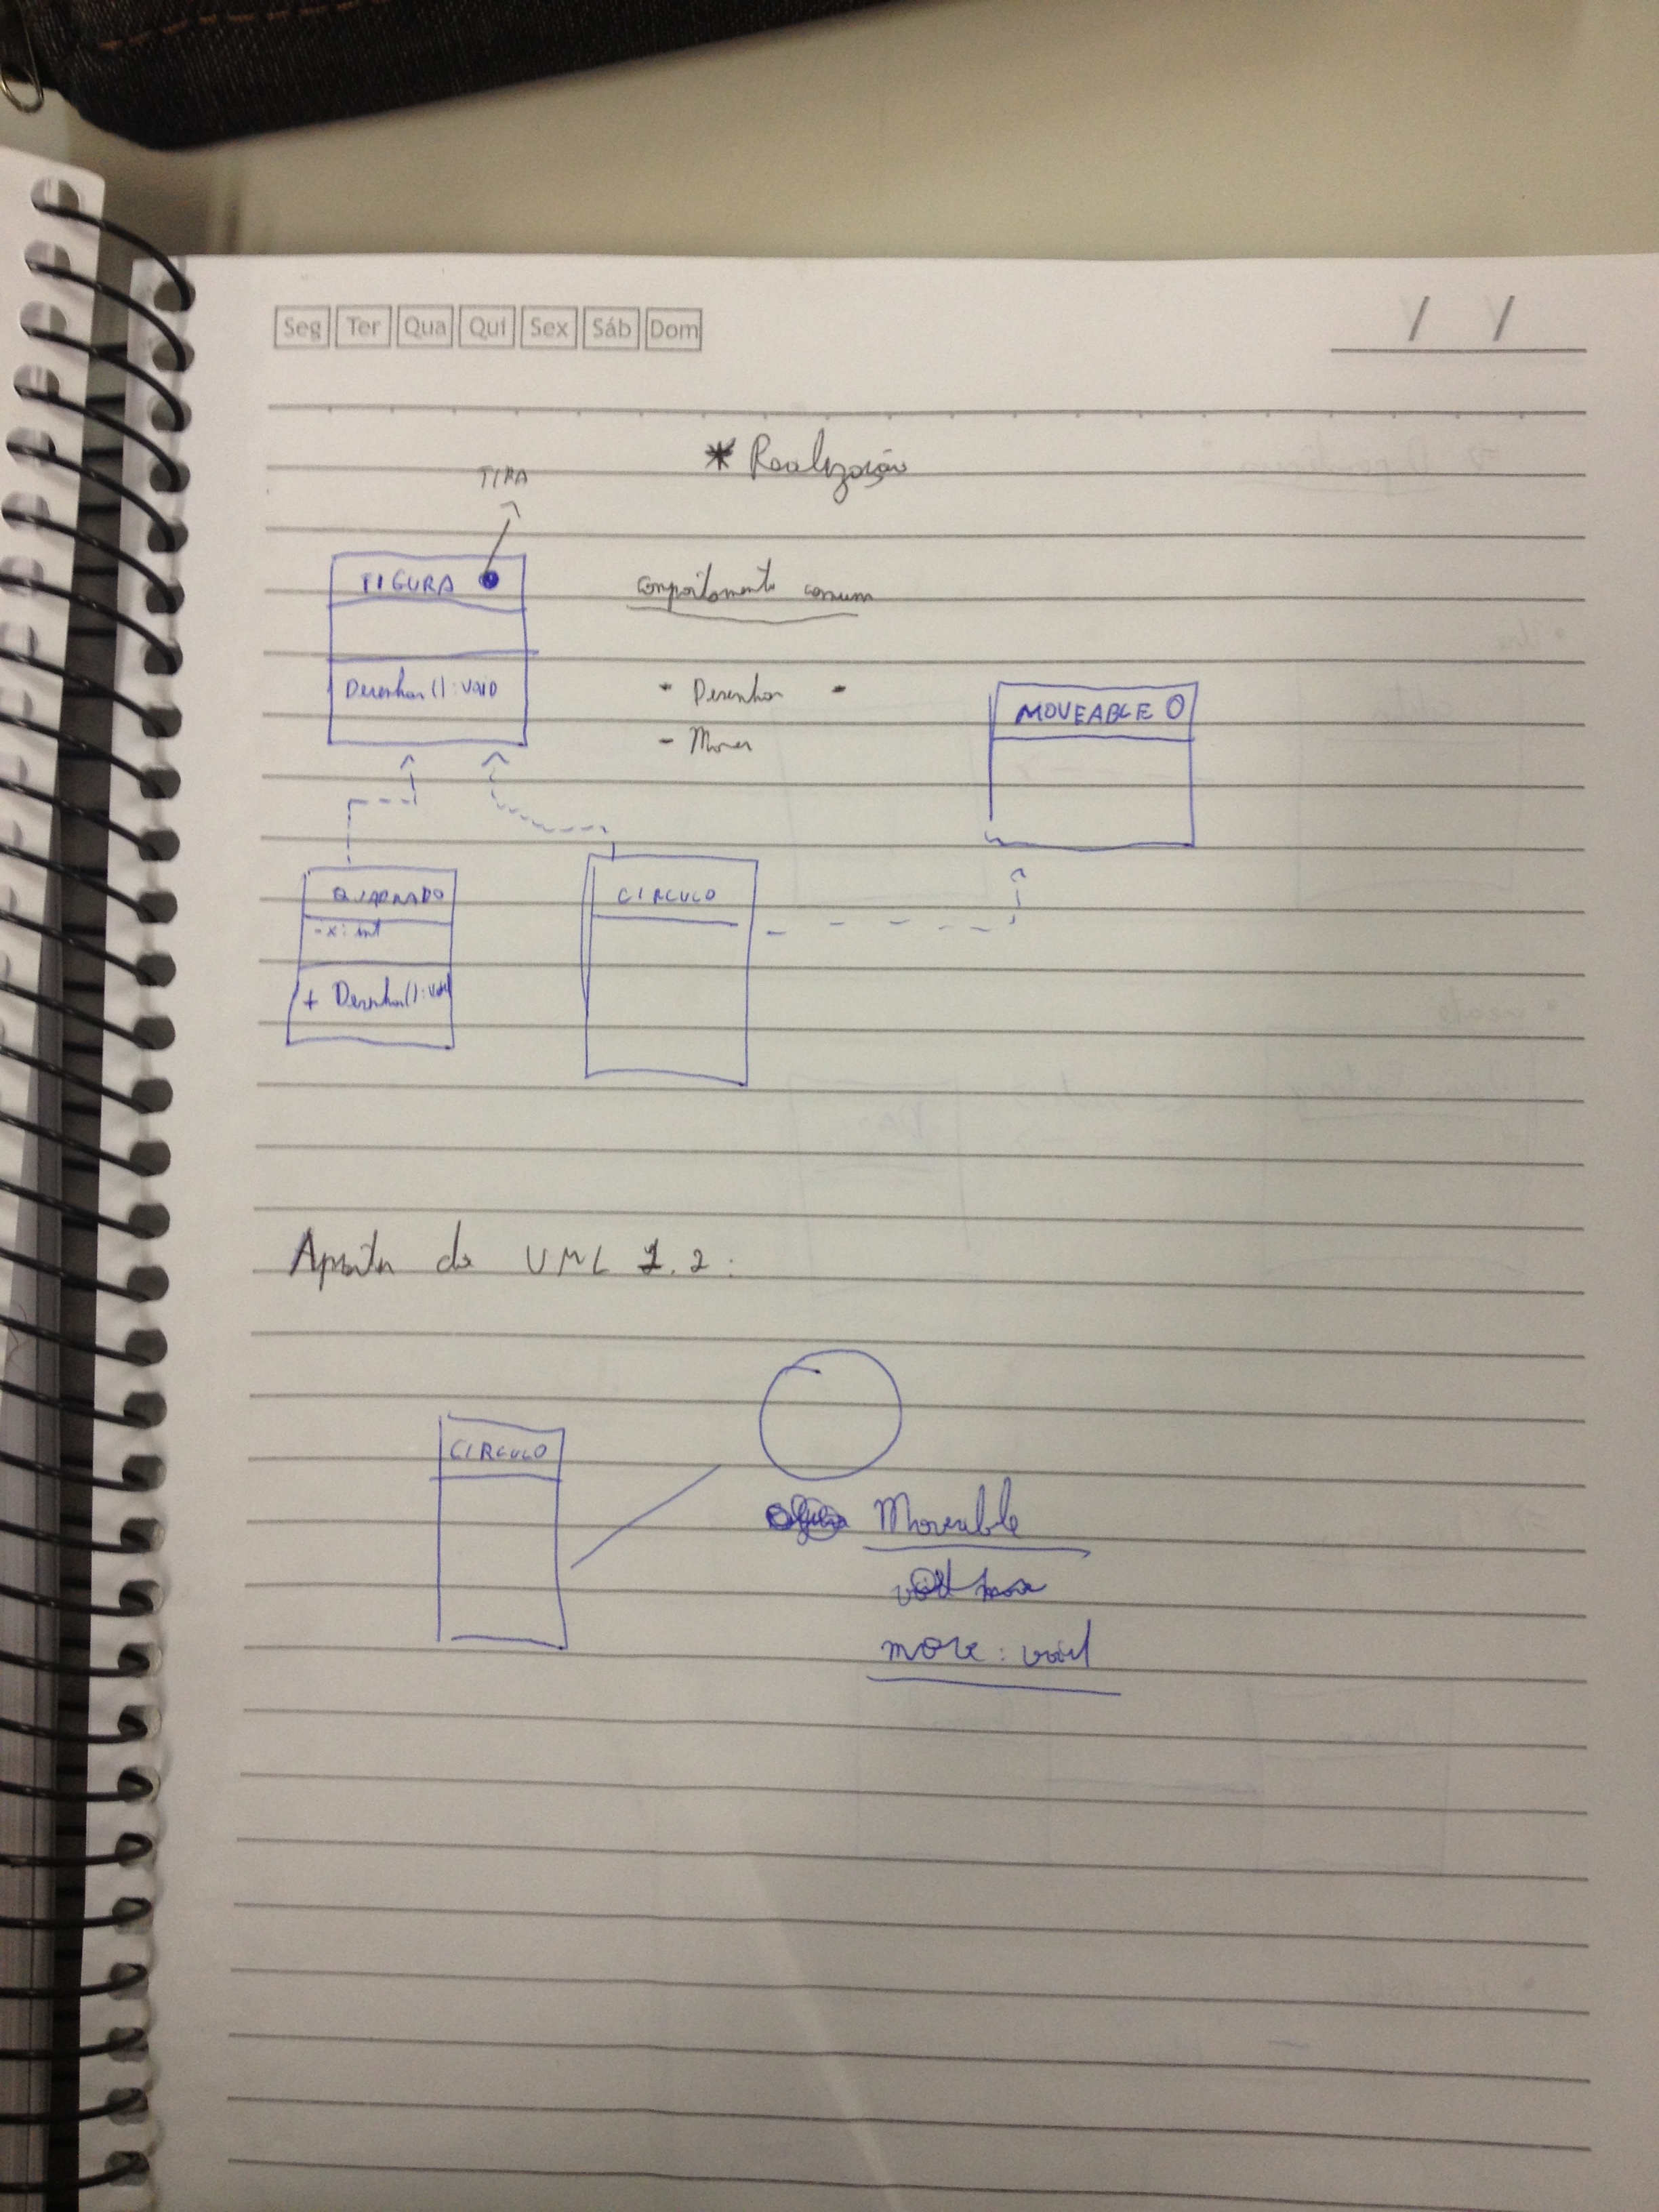 Seg Ter Qua Qui Sex Sáb Dom
/ /
* Realização
TIRA
FIGURA
Desenhar(): void
comportamento comum
- Desenhar -
- Mover
MOVEABLE O
QUADRADO
- x: int
+ Desenhar(): void
CIRCULO
Apartir do UML 1.2:
CIRCULO
Moveable
void move
move: void